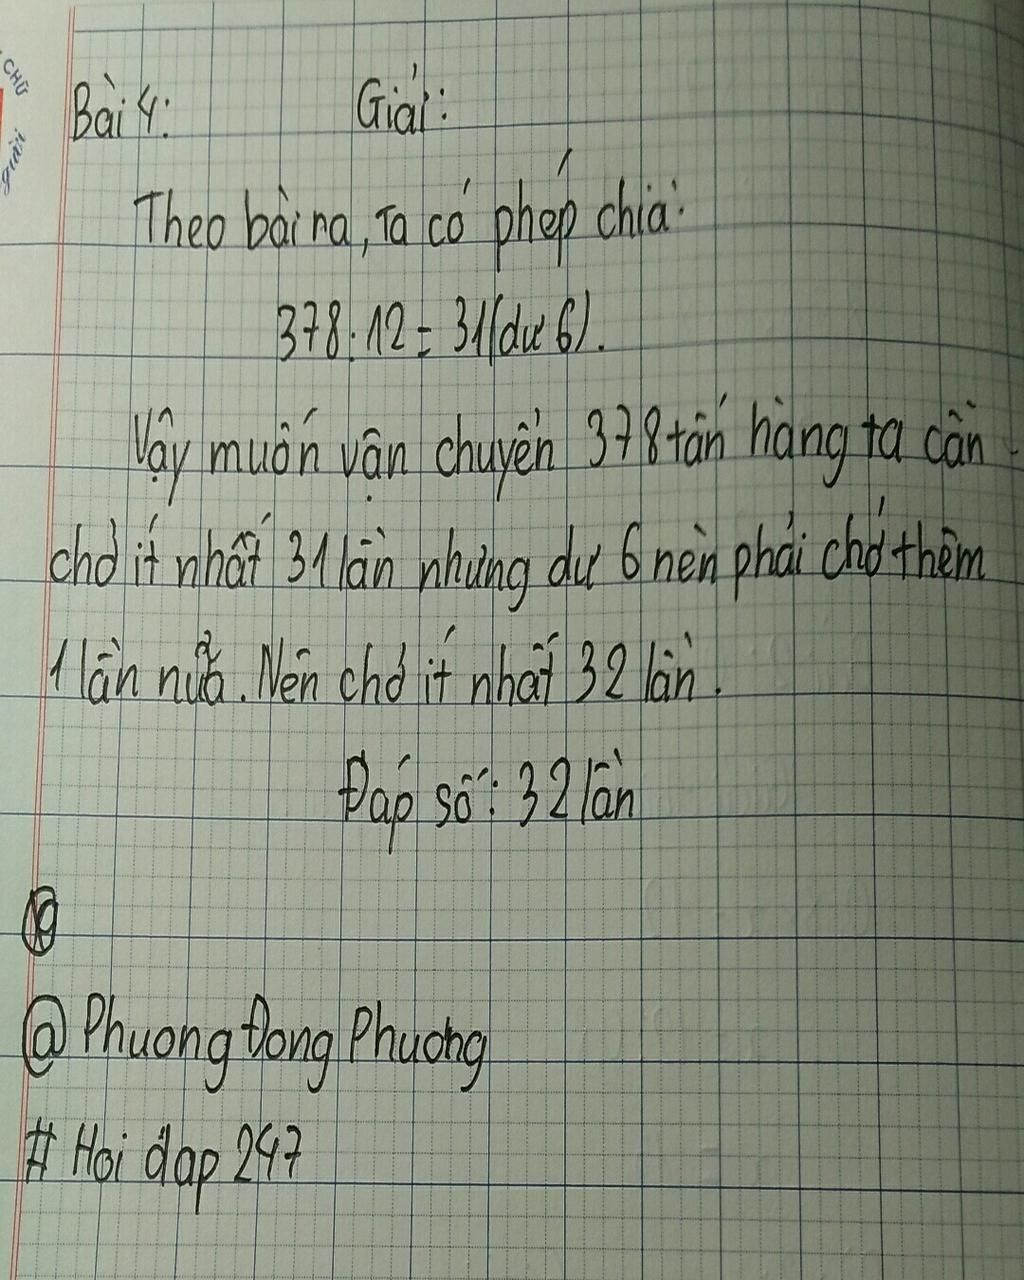 CHỮ
Bài 4: Giải:
Theo bài ra, Ta có phép chia:
378 : 12 = 31 (dư 6).
Vậy muốn vận chuyển 378 tấn hàng ta cần
chở ít nhất 31 lần nhưng dư 6 nên phải chở thêm
1 lần nữa. Nên chở ít nhất 32 lần.
Đáp số: 32 lần
@ Phuong Đong Phuong
# Hoi đap 247